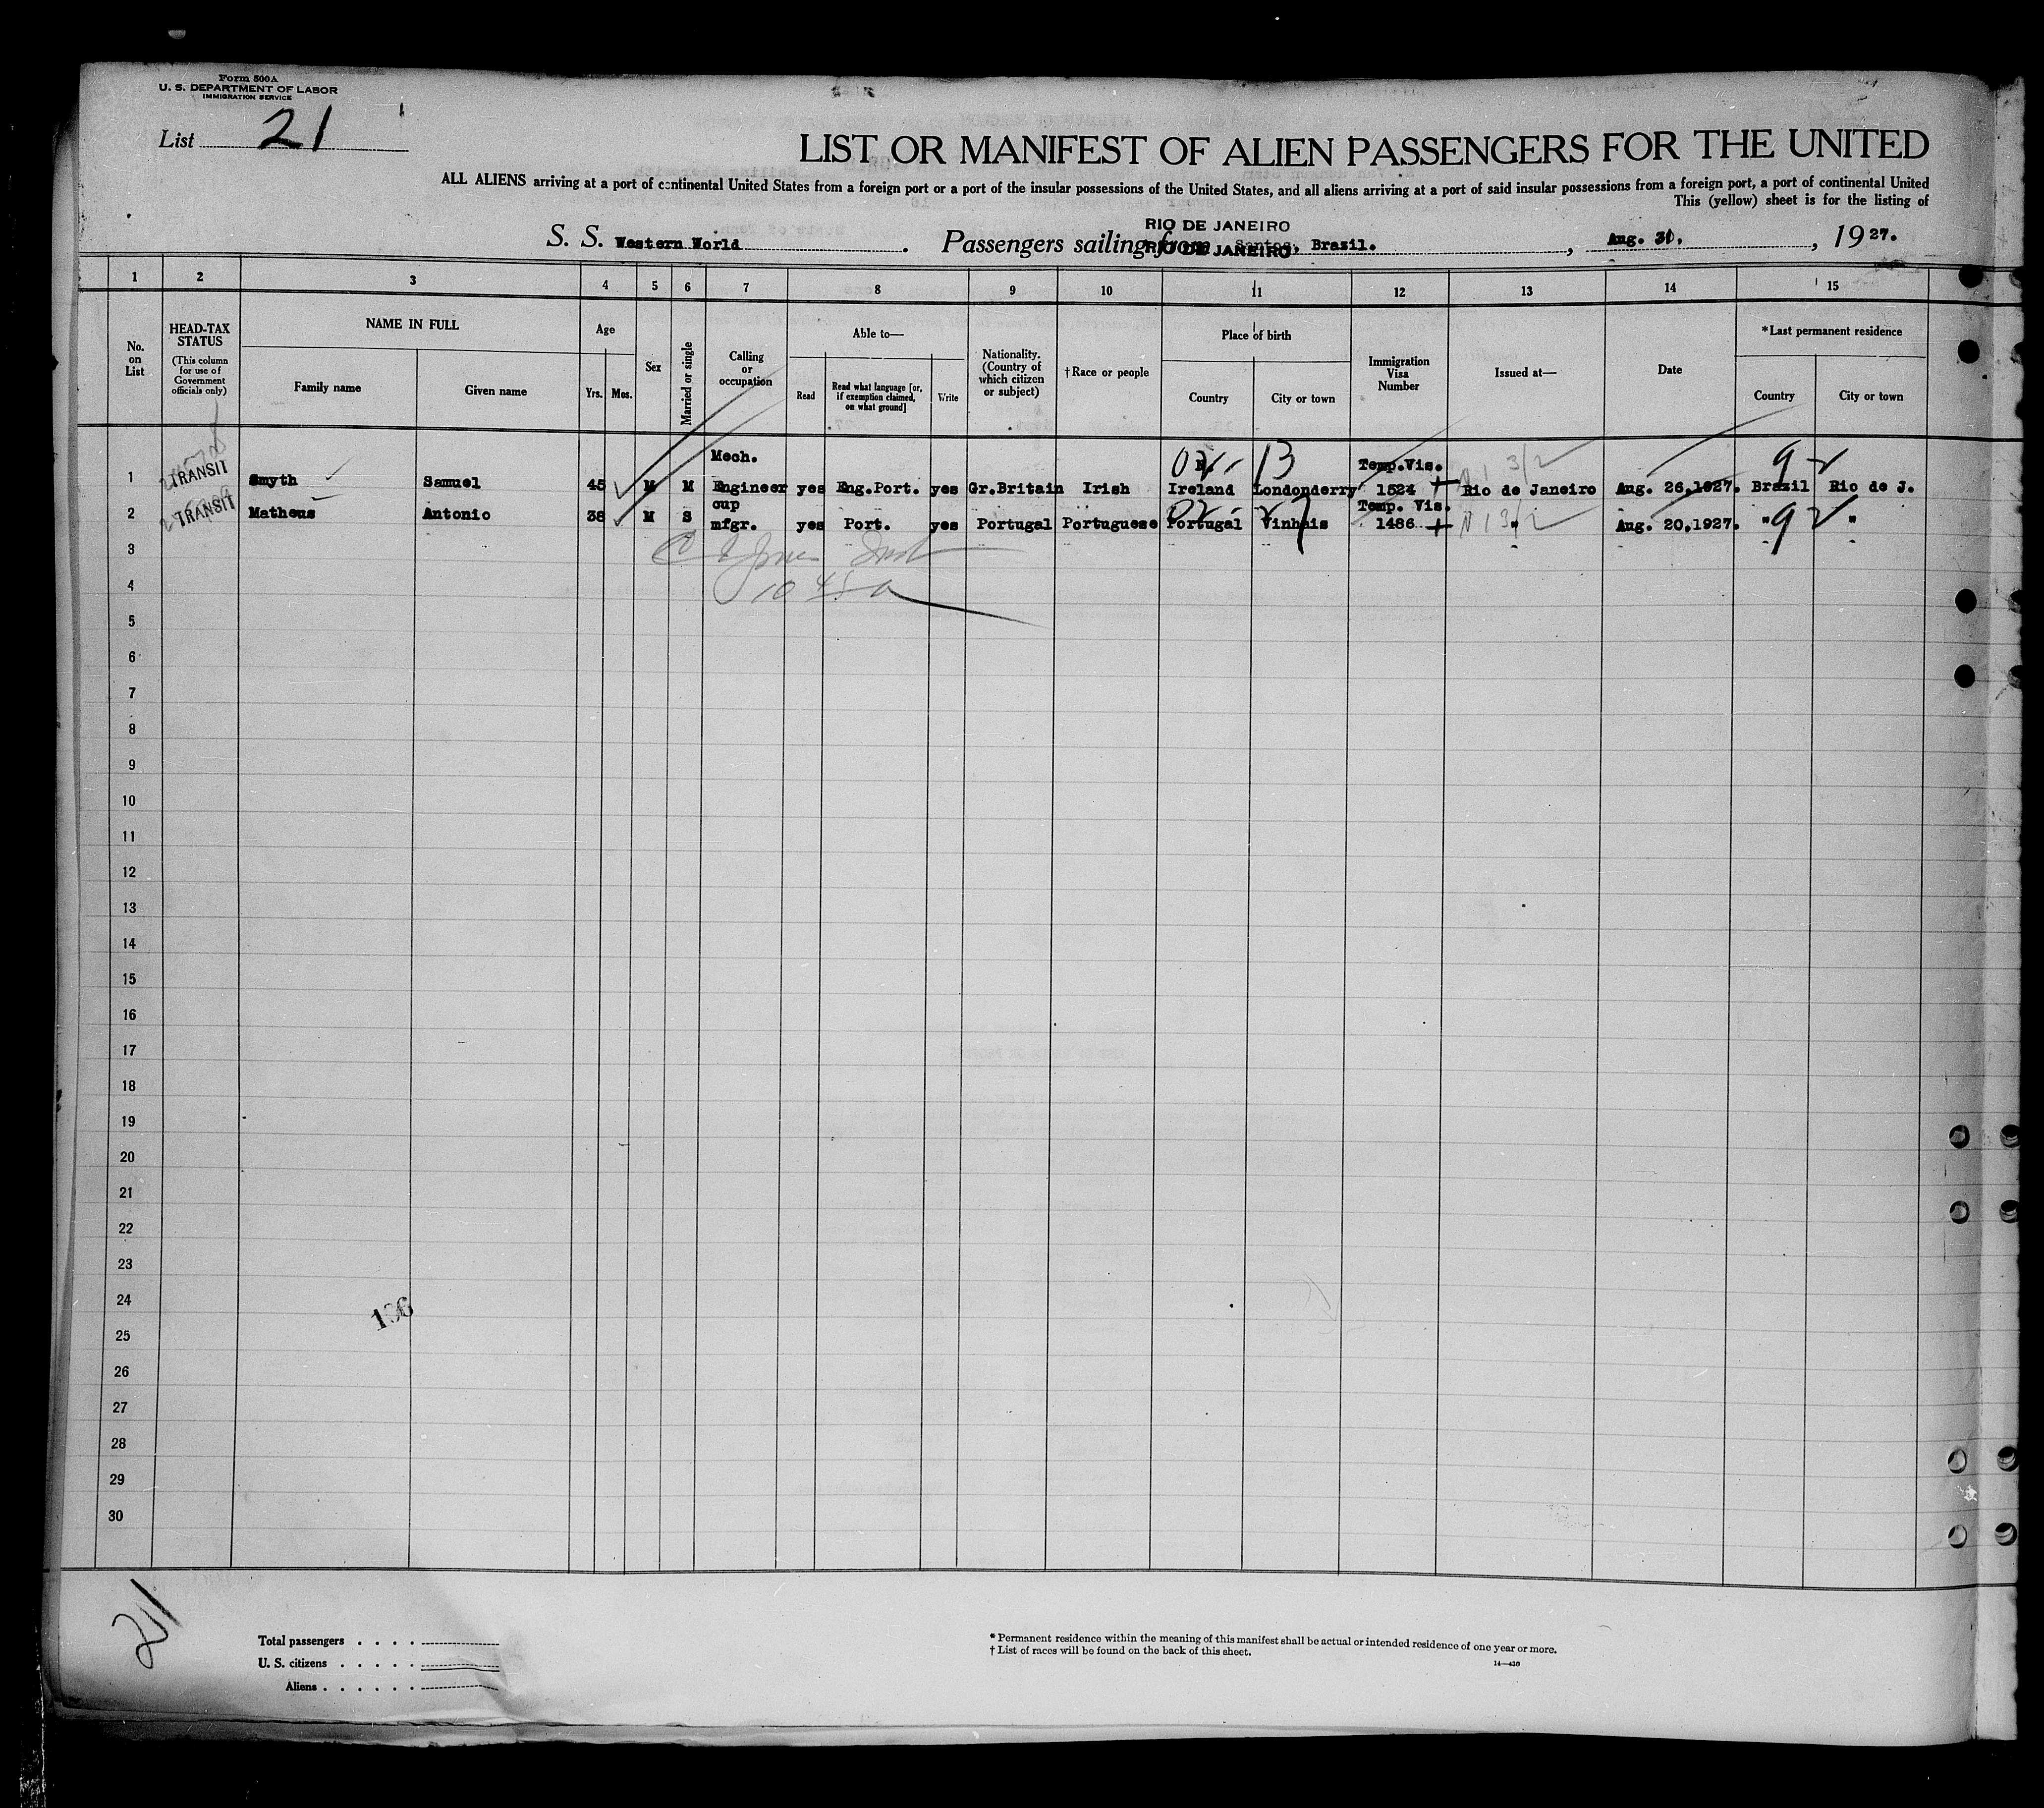 Form 500A
U. S. DEPARTMENT OF LABOR
IMMIGRATION SERVICE
List 21
LIST OR MANIFEST OF ALIEN PASSENGERS FOR THE UNITED
ALL ALIENS arriving at a port of continental United States from a foreign port or a port of the insular possessions of the United States, and all aliens arriving at a port of said insular possessions from a foreign port, a port of continental United
This (yellow) sheet is for the listing of
RIO DE JANEIRO
S. S. Western World. Passengers sailing from Santos, Brazil., Aug. 31., 1927.
RIO DE JANEIRO
1 2 3 4 5 6 7 8 9 10 11 12 13 14 15
No. on List
HEAD-TAX STATUS
(This column for use of Government officials only)
NAME IN FULL
Family name
Given name
Age
Yrs.
Mos.
Sex
Married or single
Calling or occupation
Able to—
Read
Read what language [or, if exemption claimed, on what ground]
Write
Nationality. (Country of which citizen or subject)
†Race or people
Place of birth
Country
City or town
Immigration Visa Number
Issued at—
Date
*Last permanent residence
Country
City or town
Mech. 02 - 13 Temp.Vis. 92
1 TRANSIT Smyth Samuel 45 M M Engineer yes Eng.Port. yes Gr.Britain Irish Ireland Londonderry 1524 Rio de Janeiro Aug. 26,1927. Brazil Rio de J.
cup 02 - 27 Temp. Vis. 92
2 TRANSIT Matheus Antonio 38 M S mfgr. yes Port. yes Portugal Portuguese Portugal Vinhais 1486 " Aug. 20,1927. " "
3
4
5
6
7
8
9
10
11
12
13
14
15
16
17
18
19
20
21
22
23
24
136
25
26
27
28
29
30
21
Total passengers
U. S. citizens
Aliens
* Permanent residence within the meaning of this manifest shall be actual or intended residence of one year or more.
† List of races will be found on the back of this sheet.
14—430